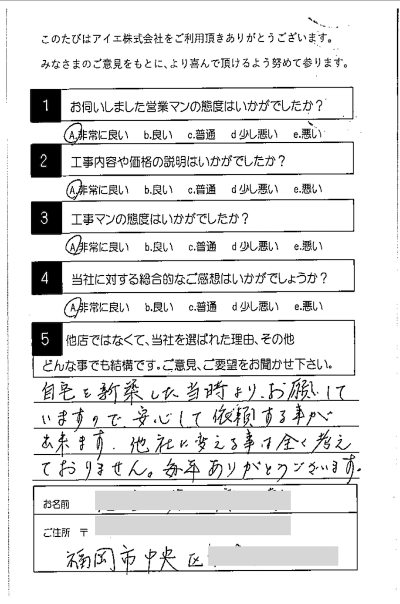 このたびはアイエ株式会社をご利用頂きありがとうございます。
みなさまのご意見をもとに、より喜んで頂けるよう努めて参ります。
1 お伺いしました営業マンの態度はいかがでしたか？
A.非常に良い b.良い c.普通 d 少し悪い e.悪い
2 工事内容や価格の説明はいかがでしたか？
A.非常に良い b.良い c.普通 d 少し悪い e.悪い
3 工事マンの態度はいかがでしたか？
A.非常に良い b.良い c.普通 d 少し悪い e.悪い
4 当社に対する総合的なご感想はいかがでしょうか？
A.非常に良い b.良い c.普通 d 少し悪い e.悪い
5 他店ではなくて、当社を選ばれた理由、その他
どんな事でも結構です。ご意見、ご要望をお聞かせ下さい。
自宅を新築した当時より、お願いして
いますので、安心して依頼する事が
出来ます。他社に変える事は全く考え
ておりません。毎年ありがとうございます。
お名前
ご住所 〒
福岡市中央区